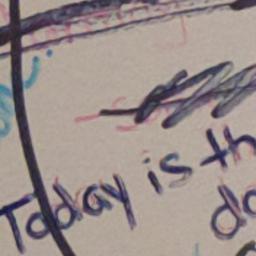 Today is th
da